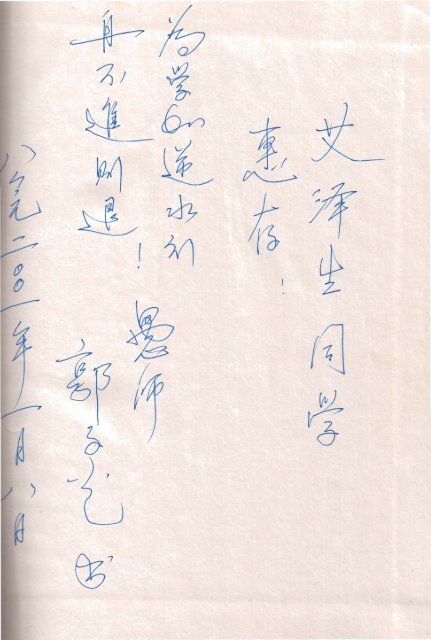 艾泽生同学
惠存！
為学如逆水行
舟不進则退！
愚师
郭子光书
公元二〇〇一年一月八日